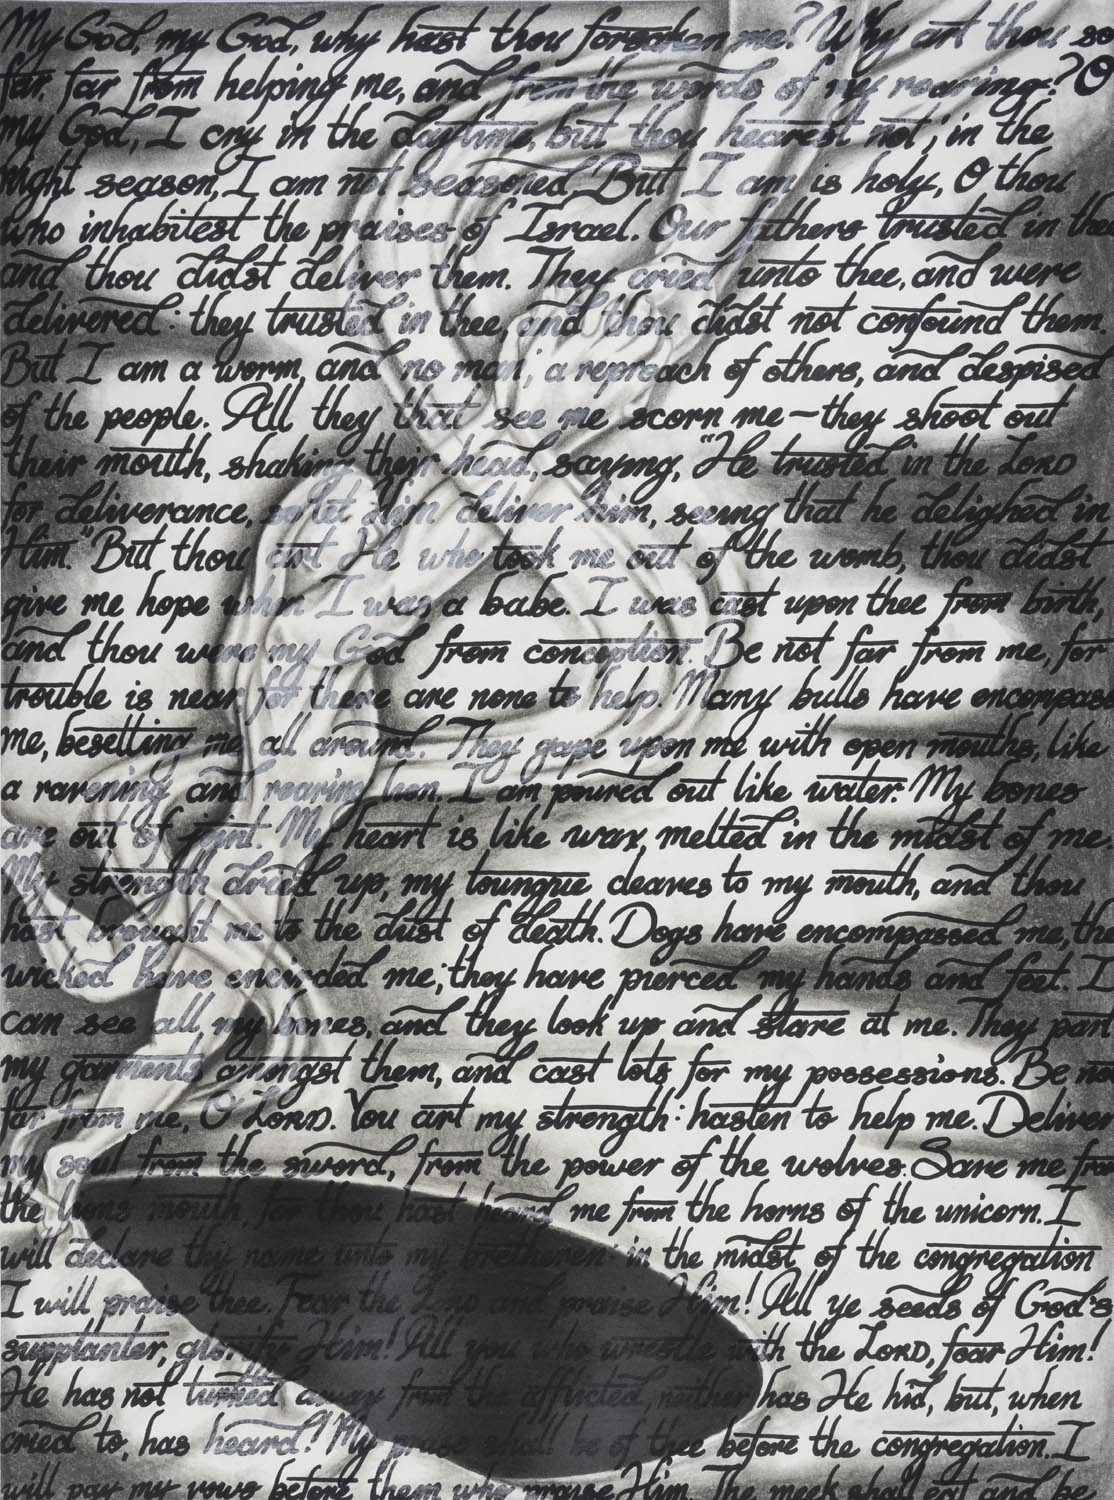 My God, my God, why hast thou forsaken me? Why art thou so
far, far from helping me, and from the words of my roaring? O
my God, I cry in the daytime, but thou hearest not; in the
night season, I am not seasoned. But I am is holy, O thou
who inhabitest the praises of Israel. Our fathers trusted in thee
and thou didst deliver them. They cried unto thee, and were
delivered: they trusted in thee, and thou didst not confound them.
But I am a worm, and no man; a reproach of others, and despised
of the people. All they that see me scorn me – they shoot out
their mouth, shaking their head, saying, "He trusted in the LORD
for deliverance, so let Him deliver him, seeing that he delighed in
Him." But thou art He who took me out of the womb, thou didst
give me hope when I was a babe. I was cast upon thee from birth,
and thou were my God from conception. Be not far from me, for
trouble is near for there are none to help. Many bulls have encompass
me, besetting me all around. They gape upon me with open mouths, like
a ravening and roaring lion. I am poured out like water. My bones
are out of joint. My heart is like wax, melted in the midst of me.
My strength dried up, my toungue cleaves to my mouth, and thou
hast brought me to the dust of death. Dogs have encompassed me, the
wicked have encircled me; they have pierced my hands and feet. I
can see all my bones, and they look up and stare at me. They part
my garments amongst them, and cast lots for my possessions. Be not
far from me, O LORD. You art my strength: hasten to help me. Deliver
my soul from the sword, from the power of the wolves. Save me from
the lions mouth, for thou hast heard me from the horns of the unicorn. I
will declare thy name unto my bretheren: in the midst of the congregation
I will praise thee. Fear the LORD and praise Him! All ye seeds of God's
supplanter, glorify Him! All you who wrestle with the LORD, fear Him!
He has not turned away from the afflicted, neither has He hid, but, when
cried to, has heard! My praise shall be of thee before the congregation. I
will pay my vows before them who praise Him. The meek shall eat and be